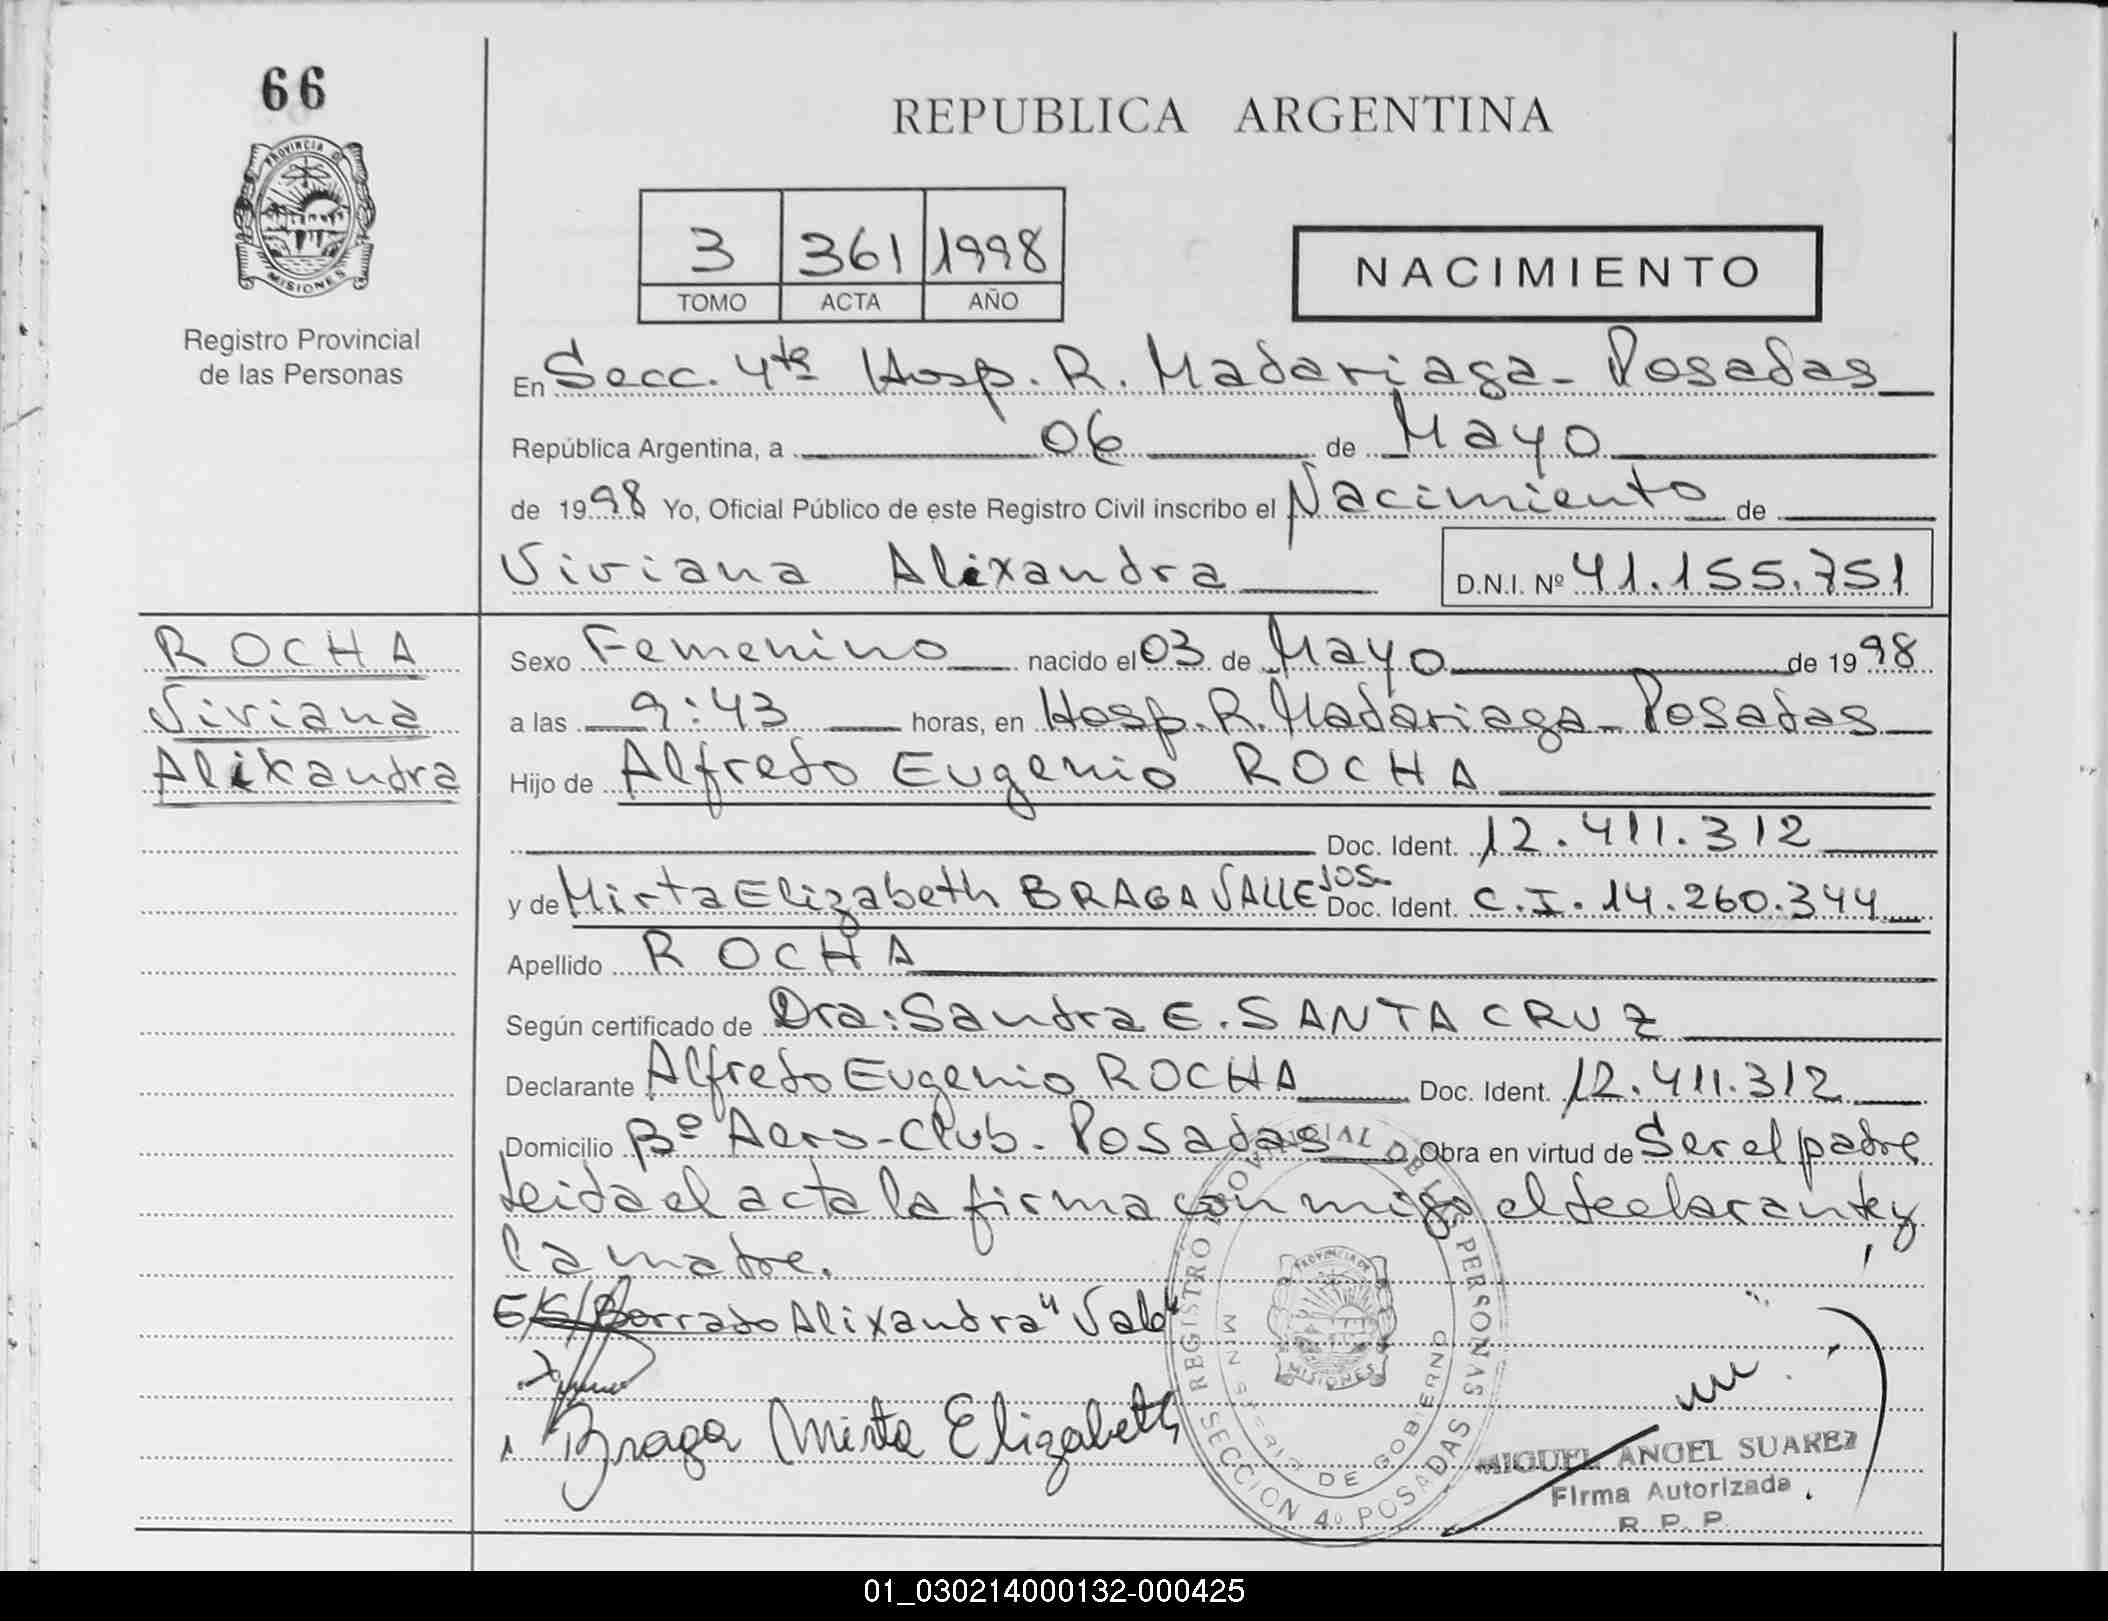 66
REPUBLICA ARGENTINA
PROVINCIA DE
MISIONES
3 361 1998
TOMO ACTA AÑO
NACIMIENTO
Registro Provincial
de las Personas
En Secc. 4ta Hosp. R. Madariaga - Posadas
República Argentina, a 06 de Mayo
de 1998 Yo, Oficial Público de este Registro Civil inscribo el Nacimiento de
Viviana Alixandra D.N.I. Nº 41.155.751
ROCHA
Viviana
Alixandra
Sexo Femenino nacido el 03 de Mayo de 1998
a las 9:43 horas, en Hosp. R. Madariaga - Posadas
Hijo de Alfredo Eugenio ROCHA
Doc. Ident. 12.411.312
y de Mirta Elizabeth BRAGA VALLEJOS Doc. Ident. C.I. 14.260.344
Apellido ROCHA
Según certificado de Dra: Sandra E. SANTA CRUZ
Declarante Alfredo Eugenio ROCHA Doc. Ident. 12.411.312
Domicilio Bº Aero-Club. Posadas Obra en virtud de Ser el padre
Leida el acta la firma con migo el declarante y
la madre.
Borrado Alixandra "Vale"
Braga Mirta Elizabeth
REGISTRO PROVINCIAL DE LAS PERSONAS
MINISTERIO DE GOBIERNO
PROVINCIA DE
MISIONES
SECCION 4º POSADAS
MIGUEL ANGEL SUAREZ
Firma Autorizada
R. P. P.
01_030214000132-000425